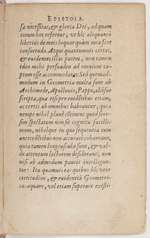 EPISTOLA.
sæ necessitas, & gloria Dei, ad quam
totum hoc refertur, ut hic aliquanto
liberius de meis loquar quàm mea fert
consuetudo. Atqui quantumvis certas,
& evidentes illas putem, non tamen
ideo mihi persuadeo ad omnium ca-
ptum esse accommodatas. Sed quemad-
modum in Geometria multæ sunt ab
Archimede, Apollonio, Pappo, aliisve
scriptæ, quæ etsi pro evidentibus etiam,
ac certis ab omnibus habeantur, quia
nempe nihil planè continent quod seor-
sim spectatum non sit cognitu facilli-
mum, nihilque in quo sequentia cum
antecedentibus non accuratè cohæreant,
quia tamen longiusculæ sunt, & val-
de attentum lectorem desiderant, non
nisi ab admodum paucis intelligun-
tur: Ita quamvis eas quibus hic utor
certitudine, & evidentiâ Geometri-
cas æquare, vel etiam superare existi-